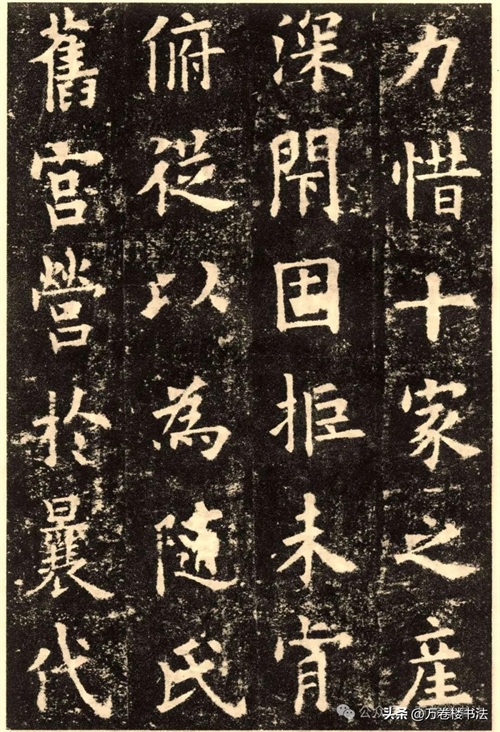 力惜十家之產
深閇固拒未肯
俯從以為隨氏
舊宮營於曩代
头条 @万卷楼书法